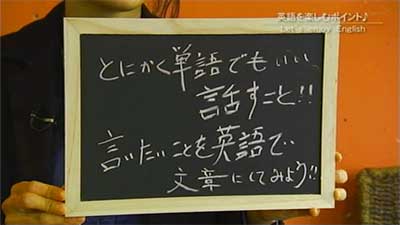 英語を楽しむポイント♪
Let's enjoy English
とにかく単語でもいい、
話すこと!!
言いたいことを英語で
文章にしてみよう!!